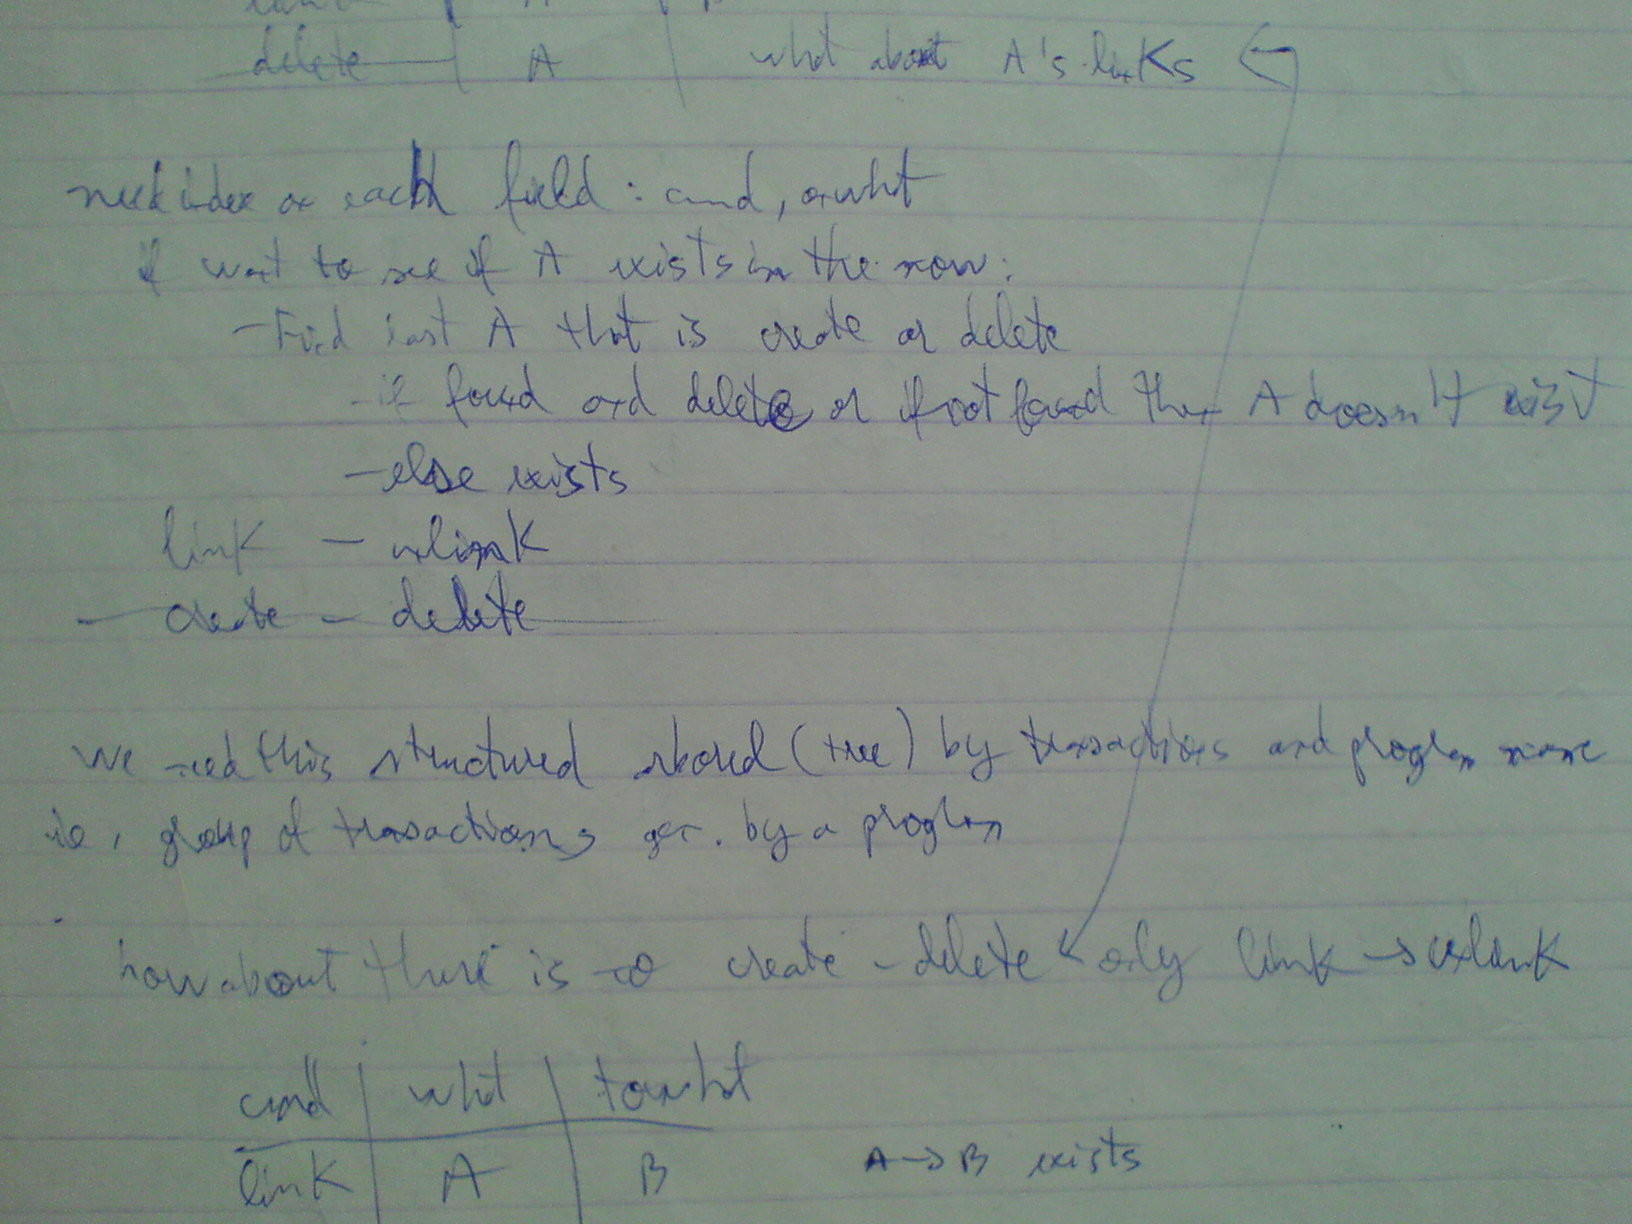 delete | A | what about A's links ←
need index on each field: cmd, onwht
if want to see if A exists in the now:
- Find last A that is create or delete
- if found and delete or if not found then A doesn't exist
- else exists
link - unlink
- create - delete
we need this structured stored (tree) by transactions and program name
ie, group of transactions ger. by a program
how about there is no create - delete only link → unlink
cmd | wht | towht
link | A | B A → B exists